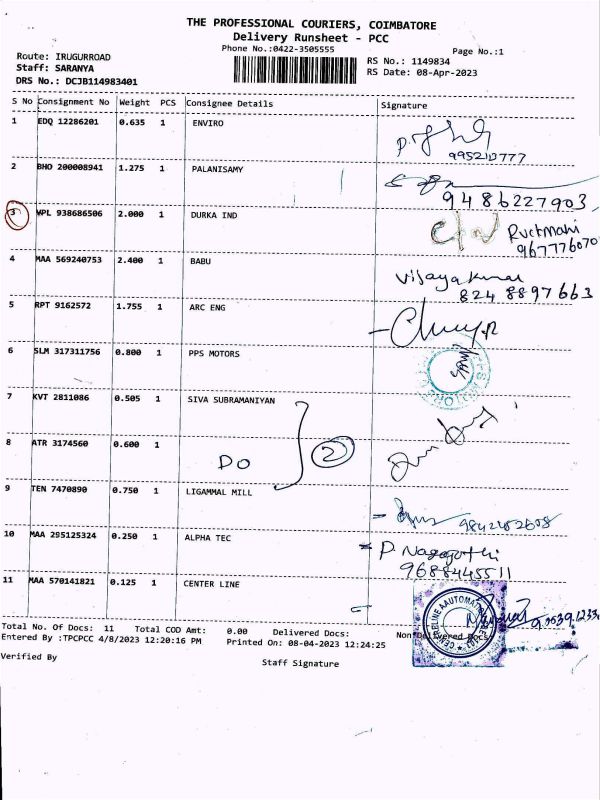 THE PROFESSIONAL COURIERS, COIMBATORE
Delivery Runsheet - PCC
Phone No.:0422-3505555 Page No.:1
Route: IRUGURROAD RS No.: 1149834
Staff: SARANYA RS Date: 08-Apr-2023
DRS No.: DCJB114983401
S No Consignment No Weight PCS Consignee Details Signature
1 EDQ 12286201 0.635 1 ENVIRO
2 BHO 200008941 1.275 1 PALANISAMY
9486227903
3 WPL 938686506 2.000 1 DURKA IND
Rukmani
967776070
4 MAA 569240753 2.400 1 BABU
Vijayakumar
824 8897663
5 RPT 9162572 1.755 1 ARC ENG
6 SLM 317311756 0.800 1 PPS MOTORS
7 KVT 2811086 0.505 1 SIVA SUBRAMANIYAN
8 ATR 3174560 0.600 1
DO 2
9 TEN 7470890 0.750 1 LIGAMMAL MILL
10 MAA 295125324 0.250 1 ALPHA TEC
9688445511
11 MAA 570141821 0.125 1 CENTER LINE
Total No. Of Docs: 11 Total COD Amt: 0.00 Delivered Docs: Non Delivered Docs:
Entered By :TPCPCC 4/8/2023 12:20:16 PM Printed On: 08-04-2023 12:24:25
Verified By
Staff Signature